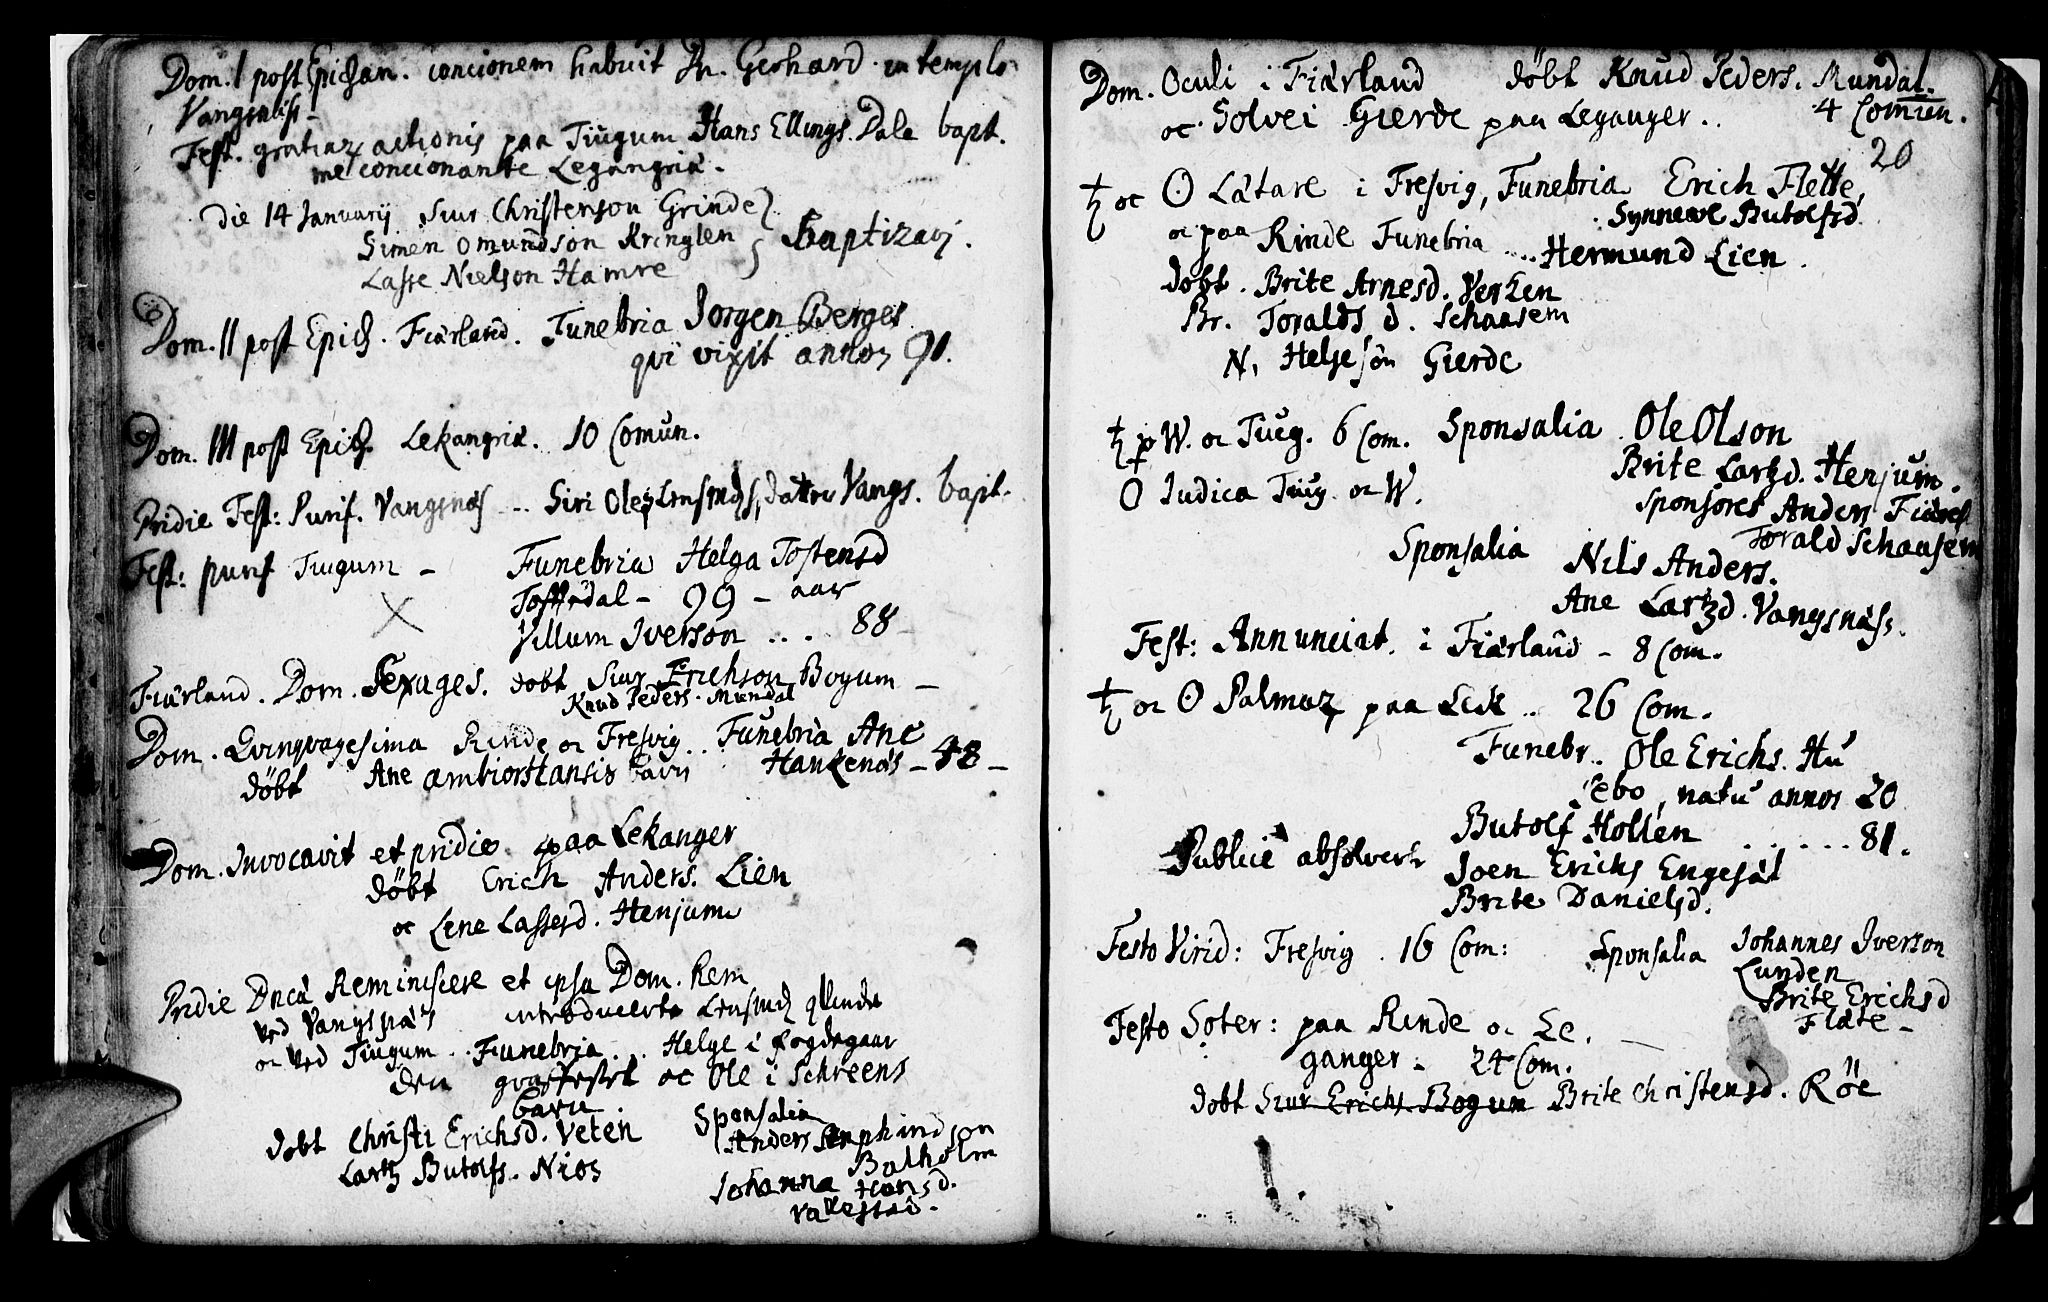 Dom. I post Epiphan. concionem habuit Dn. Gerhard in templo
Vangsnäss.
Fest. gratiar actionis paa Tiugum Hans Ellings. Dale bapt.
me concionante Legangriæ.
Die 14 Januarij Siur Christenson Grinde
Simen Omundson Kringlen } Baptizavj.
Lasse Nielson Hamre
Dom. II post Epiph. Fiärland. Funebria Jorgen Berges
qvi vixit annos 91.
Dom. III post Epiph. Lekangriæ. 10 Comun.
Pridie Fest: Purif. Vangsnäs .. Siri Oles datter Vangs. bapt.
Fest: purif Tiugum - Funebria Helga Tostensd
- 99 - aar
Villum Iverson .... 88
Fiärland. Dom. Sexages. dobt Siur Erichson Boyum -
Knud Peders. Mundal
Dom. Qvinqvagesima Rinde oc Fresvig .. Funebria Ane
döbt Ane barn Haukenäs - 48 -
Dom. Invocavit et pridie paa Lekanger
döbt Erich Anders. Lien
oc Lene Lassesd. Henjum
Pridie Dnca Reminiscere et ipsa Dom. Rem
ved Vangsnäs introducerte
oc ved Tiugum .. Funebria .. Helge i Fogdegaar
den oc Ole i Schreens
barn.
dobt Christi Erichsd. Veten Sponsalia
Anders
Balholm
Lartz Butolfs. Nios
Johanna Hansd.
Vallestad.
Dom. Oculi i Fiärland döbt Knud Peders. Mundal.
oc Solvei Gierde paa Leganger .. 4 Comun.
20
♄ oc ☉ Lätare i Fresvig, Funebria Erich Flette,
Synneve Butolfsd.
oc paa Rinde Funebria .... Hermund Lien.
dobt. Brite Arnesd. Verken
Br. Toralds d. Schaasem
N. Helje son Gierde
♄ p W. oc Tiug. 6 Com. Sponsalia Ole Olson
Brite Lartzd. Henjum.
☉ Iudica Tiug. oc W.
Sponsores Anders
Torald Schaasem
Sponsalia Nils Anders.
Ane Lartzd. Vangsnäss.
Fest: Annunciat. i Fiärland - 8 Com.
♄ oc ☉ Palmar paa Lek .. 26 Com.
Funebr.. Ole Erichs. Hu
sebo, natu annos 20
Butolf Hollen ...... 81.
Publice absolvert Joen Erichs Engesät
Brite Danielsd.
Festo Virid: Fresvig. 16 Com: Sponsalia Johannes Iverson
Lunden
Brite Erichsd
Fläte -
Festo Soter: paa Rinde oc Le.
ganger - 24 Com.
dobt Siur Erichs. Bogum Brite Christensd. Röe